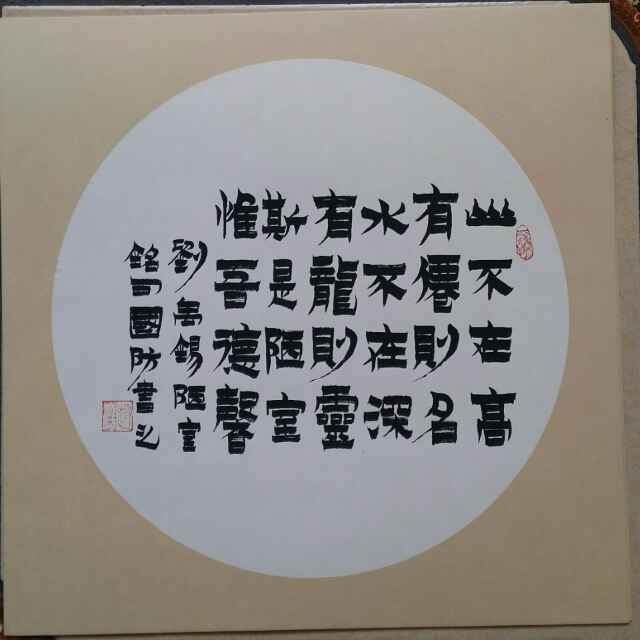 山不在高
有僊則名
水不在深
有龍則靈
斯是陋室
惟吾德馨
劉禹錫陋室
銘司國防書之